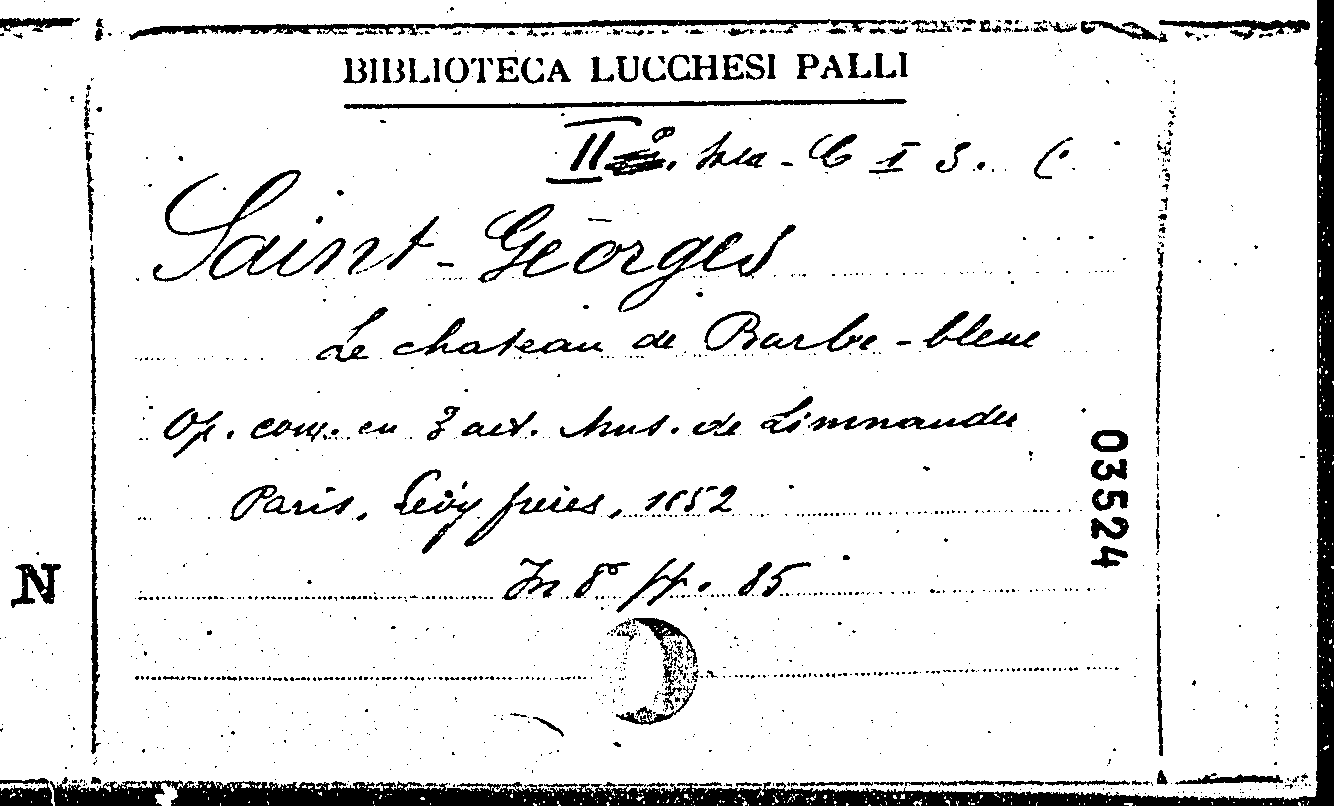 BIBLIOTECA LUCCHESI PALLI
II I 3. (.
Saint-Georges
Le chateau de Barbe-bleue
Op. com. en 3 act. Mus. de Limnander
Paris, Levy frères, 1852
In 8° pp. 85
03524
N